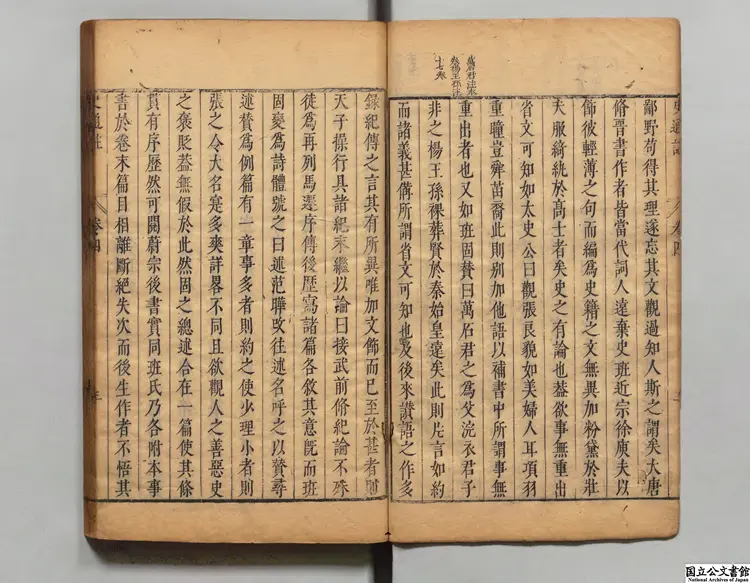 鄙野苟得其理遂忘其文觀過知人斯之謂矣大唐
脩晉書作者皆當代詞人遠棄史班近宗徐庾夫以
飾彼輕薄之句而編爲史籍之文無異加粉黛於壯
夫服綺紈於高士者矣史之有論也葢欲事無重出
省文可知如太史公曰觀張良貌如美婦人耳項羽
重瞳豈舜苗裔此則別加他語以補書中所謂事無
重出者也又如班固贊曰萬石君之爲父浣衣君子
非之楊王孫裸葬賢於秦始皇遠矣此則片言如約
而諸義甚備所謂省文可知也及後來讃語之作多
錄紀傳之言其有所異唯加文飾而已至於甚者則
天子操行具諸紀末繼以論曰接武前脩紀論不殊
徒爲再列馬遷序傳後歷寫諸篇各敘其意旣而班
固變爲詩體號之曰述范曄改往述名呼之以贊尋
述贊爲例篇有一章事多者則約之使少理小者則
張之令大名寔多爽詳畧不同且欲觀人之善惡史
之褒貶葢無假於此然固之總述合在一篇使其條
貫有序歷然可閱蔚宗後書實同班氏乃各附本事
書於卷末篇目相離斷絕失次而後生作者不悟其
卷四
国立公文書館
National Archives of Japan